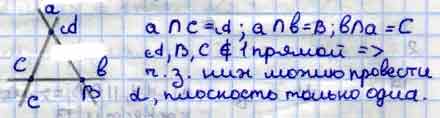 a
𝒜
C
b
c
B
a ∩ c = 𝒜; a ∩ b = B; b ∩ a = C
𝒜, B, C ∉ 1 прямой =>
ч. з. них можно провести
α, плоскость только одна.